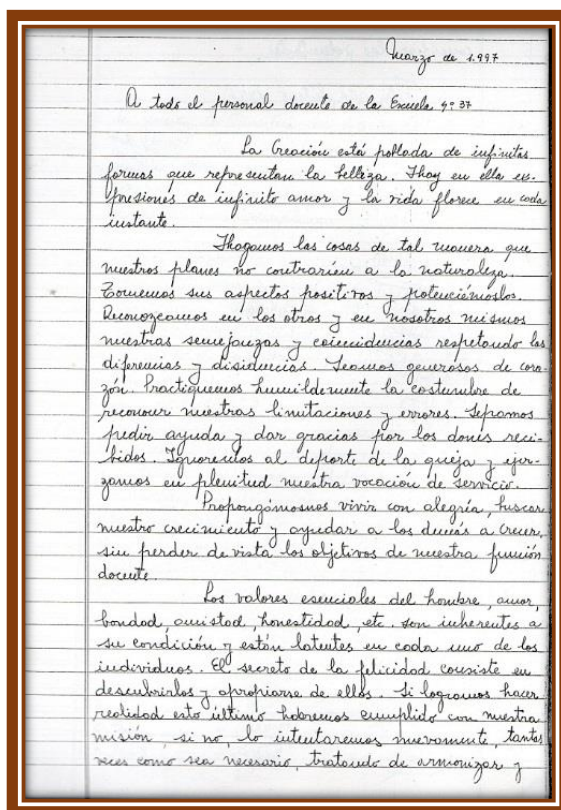 Marzo de 1.997
A todo el personal docente de la Escuela Nº 37
La Creación está poblada de infinitas
formas que representan la belleza. Hay en ella ex-
presiones de infinito amor y la vida florece en cada
instante.
Hagamos las cosas de tal manera que
nuestros planes no contraríen a la naturaleza.
Tomemos sus aspectos positivos y potenciémoslos.
Reconozcamos en los otros y en nosotros mismos
nuestras semejanzas y coincidencias respetando las
diferencias y disidencias. Seamos generosos de cora-
zón. Practiquemos humildemente la costumbre de
reconocer nuestras limitaciones y errores. Sepamos
pedir ayuda y dar gracias por los dones reci-
bidos. Ignoremos al deporte de la queja y ejer-
zamos en plenitud nuestra vocación de servicio.
Propongámosnos vivir con alegría, buscar
nuestro crecimiento y ayudar a los demás a crecer,
sin perder de vista los objetivos de nuestra función
docente.
Los valores esenciales del hombre, amor,
bondad, amistad, honestidad, etc. son inherentes a
su condición y están latentes en cada uno de los
individuos. El secreto de la felicidad consiste en
descubrirlos y apropiarse de ellos. Si logramos hacer
realidad esto último habremos cumplido con nuestra
misión, si no, lo intentaremos nuevamente, tantas
veces como sea necesario, tratando de armonizar y